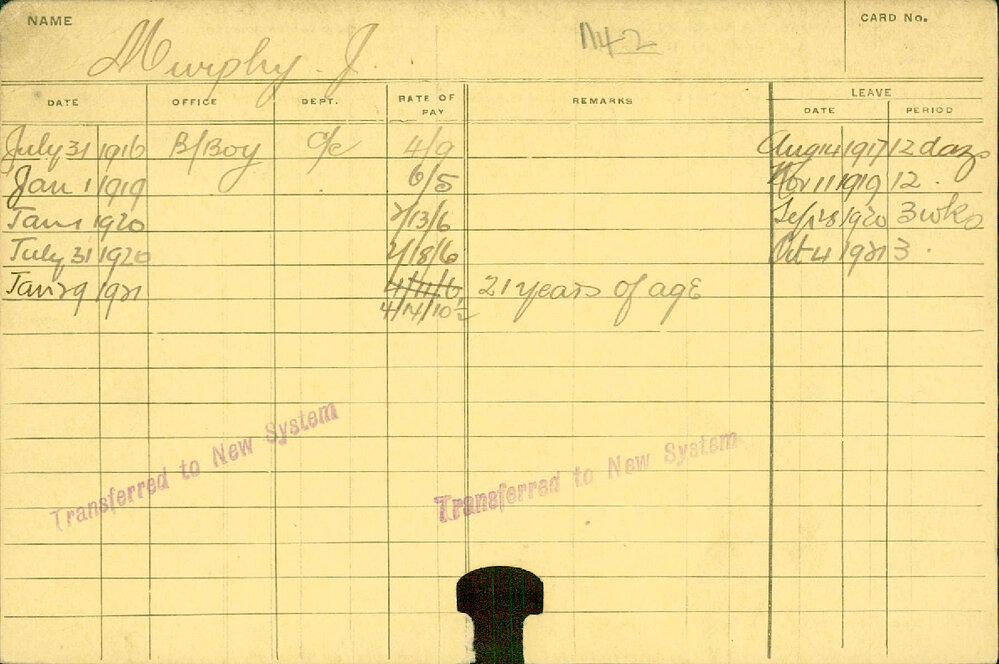 NAME
Murphy J.
M42
CARD No.
DATE OFFICE DEPT. RATE OF PAY REMARKS LEAVE
DATE PERIOD
July 31 1916 B/Boy C/c 4/9 Aug 14 1917 12 days
Jan 1 1919 6/5 Nov 11 1919 12
Jan 1 1920 /13/6 Sep 28 1920 3 wks
July 31 1920 /18/6 Oct 4 1921 3
Jan 29 1921 4/11/6 21 years of age
4/14/10½
Transferred to New System
Transferred to New System